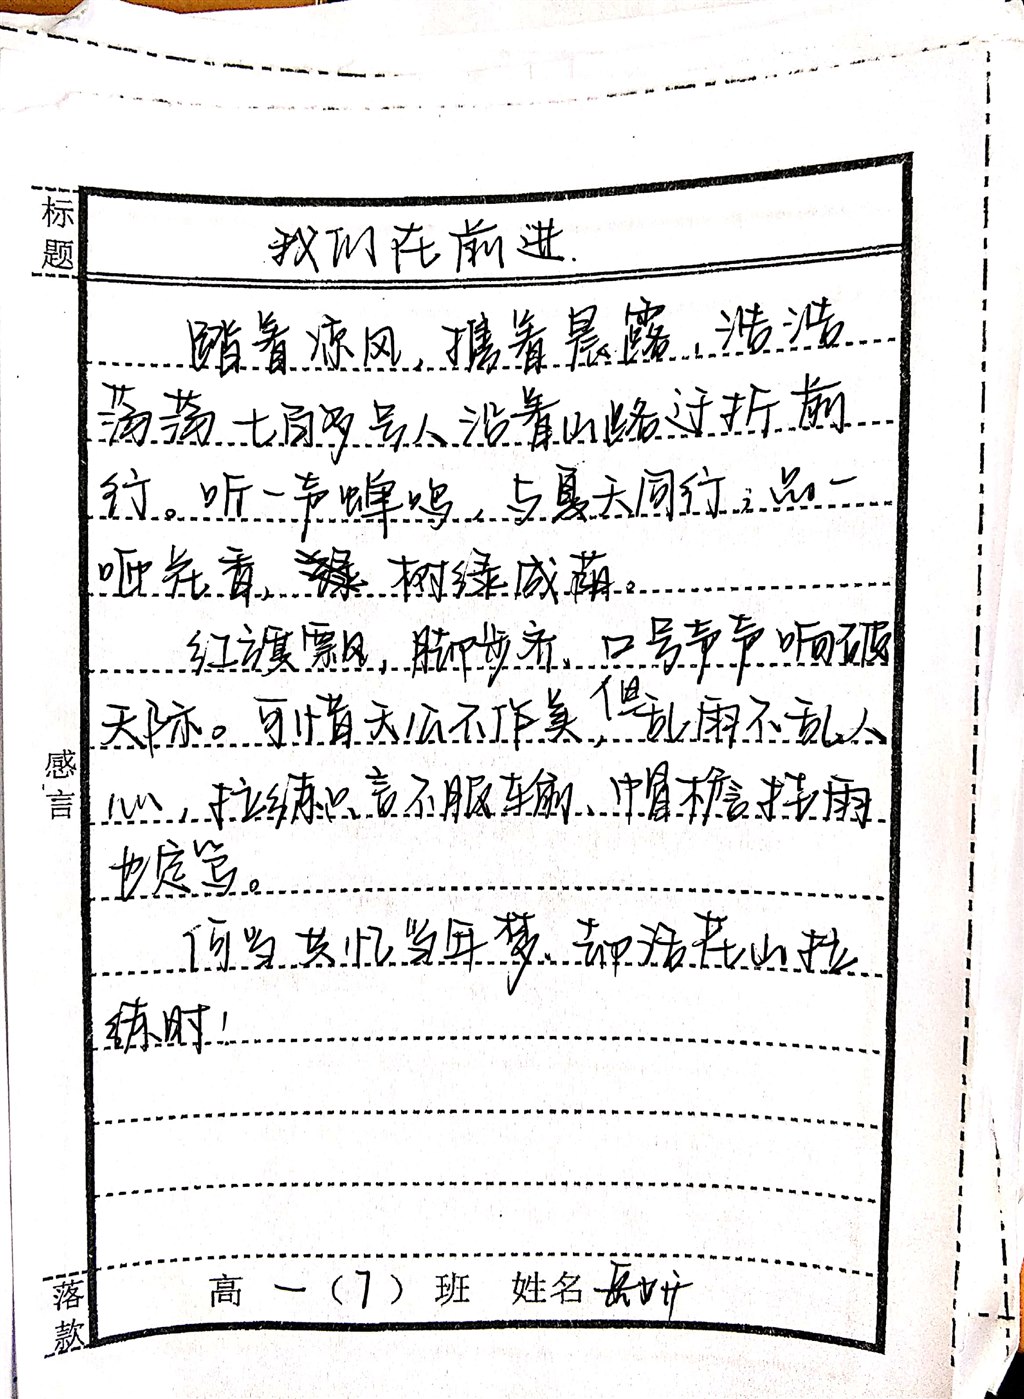 标题
我们在前进.
踏着凉风,携着晨露,浩浩
荡荡七百多号人沿着山路迂折前
行。听一声蝉鸣,与夏天同行;品一
咂花香, 树绿成荫。
红旗飘风,脚步齐、口号声声响破
天际。可惜天公不作美,但乱雨不乱人
心,拉练只言不服车前、帽檐挂雨
也定笃。
感言
何当共忆当年梦、却话花山拉
练时!
落款
高一(7)班 姓名